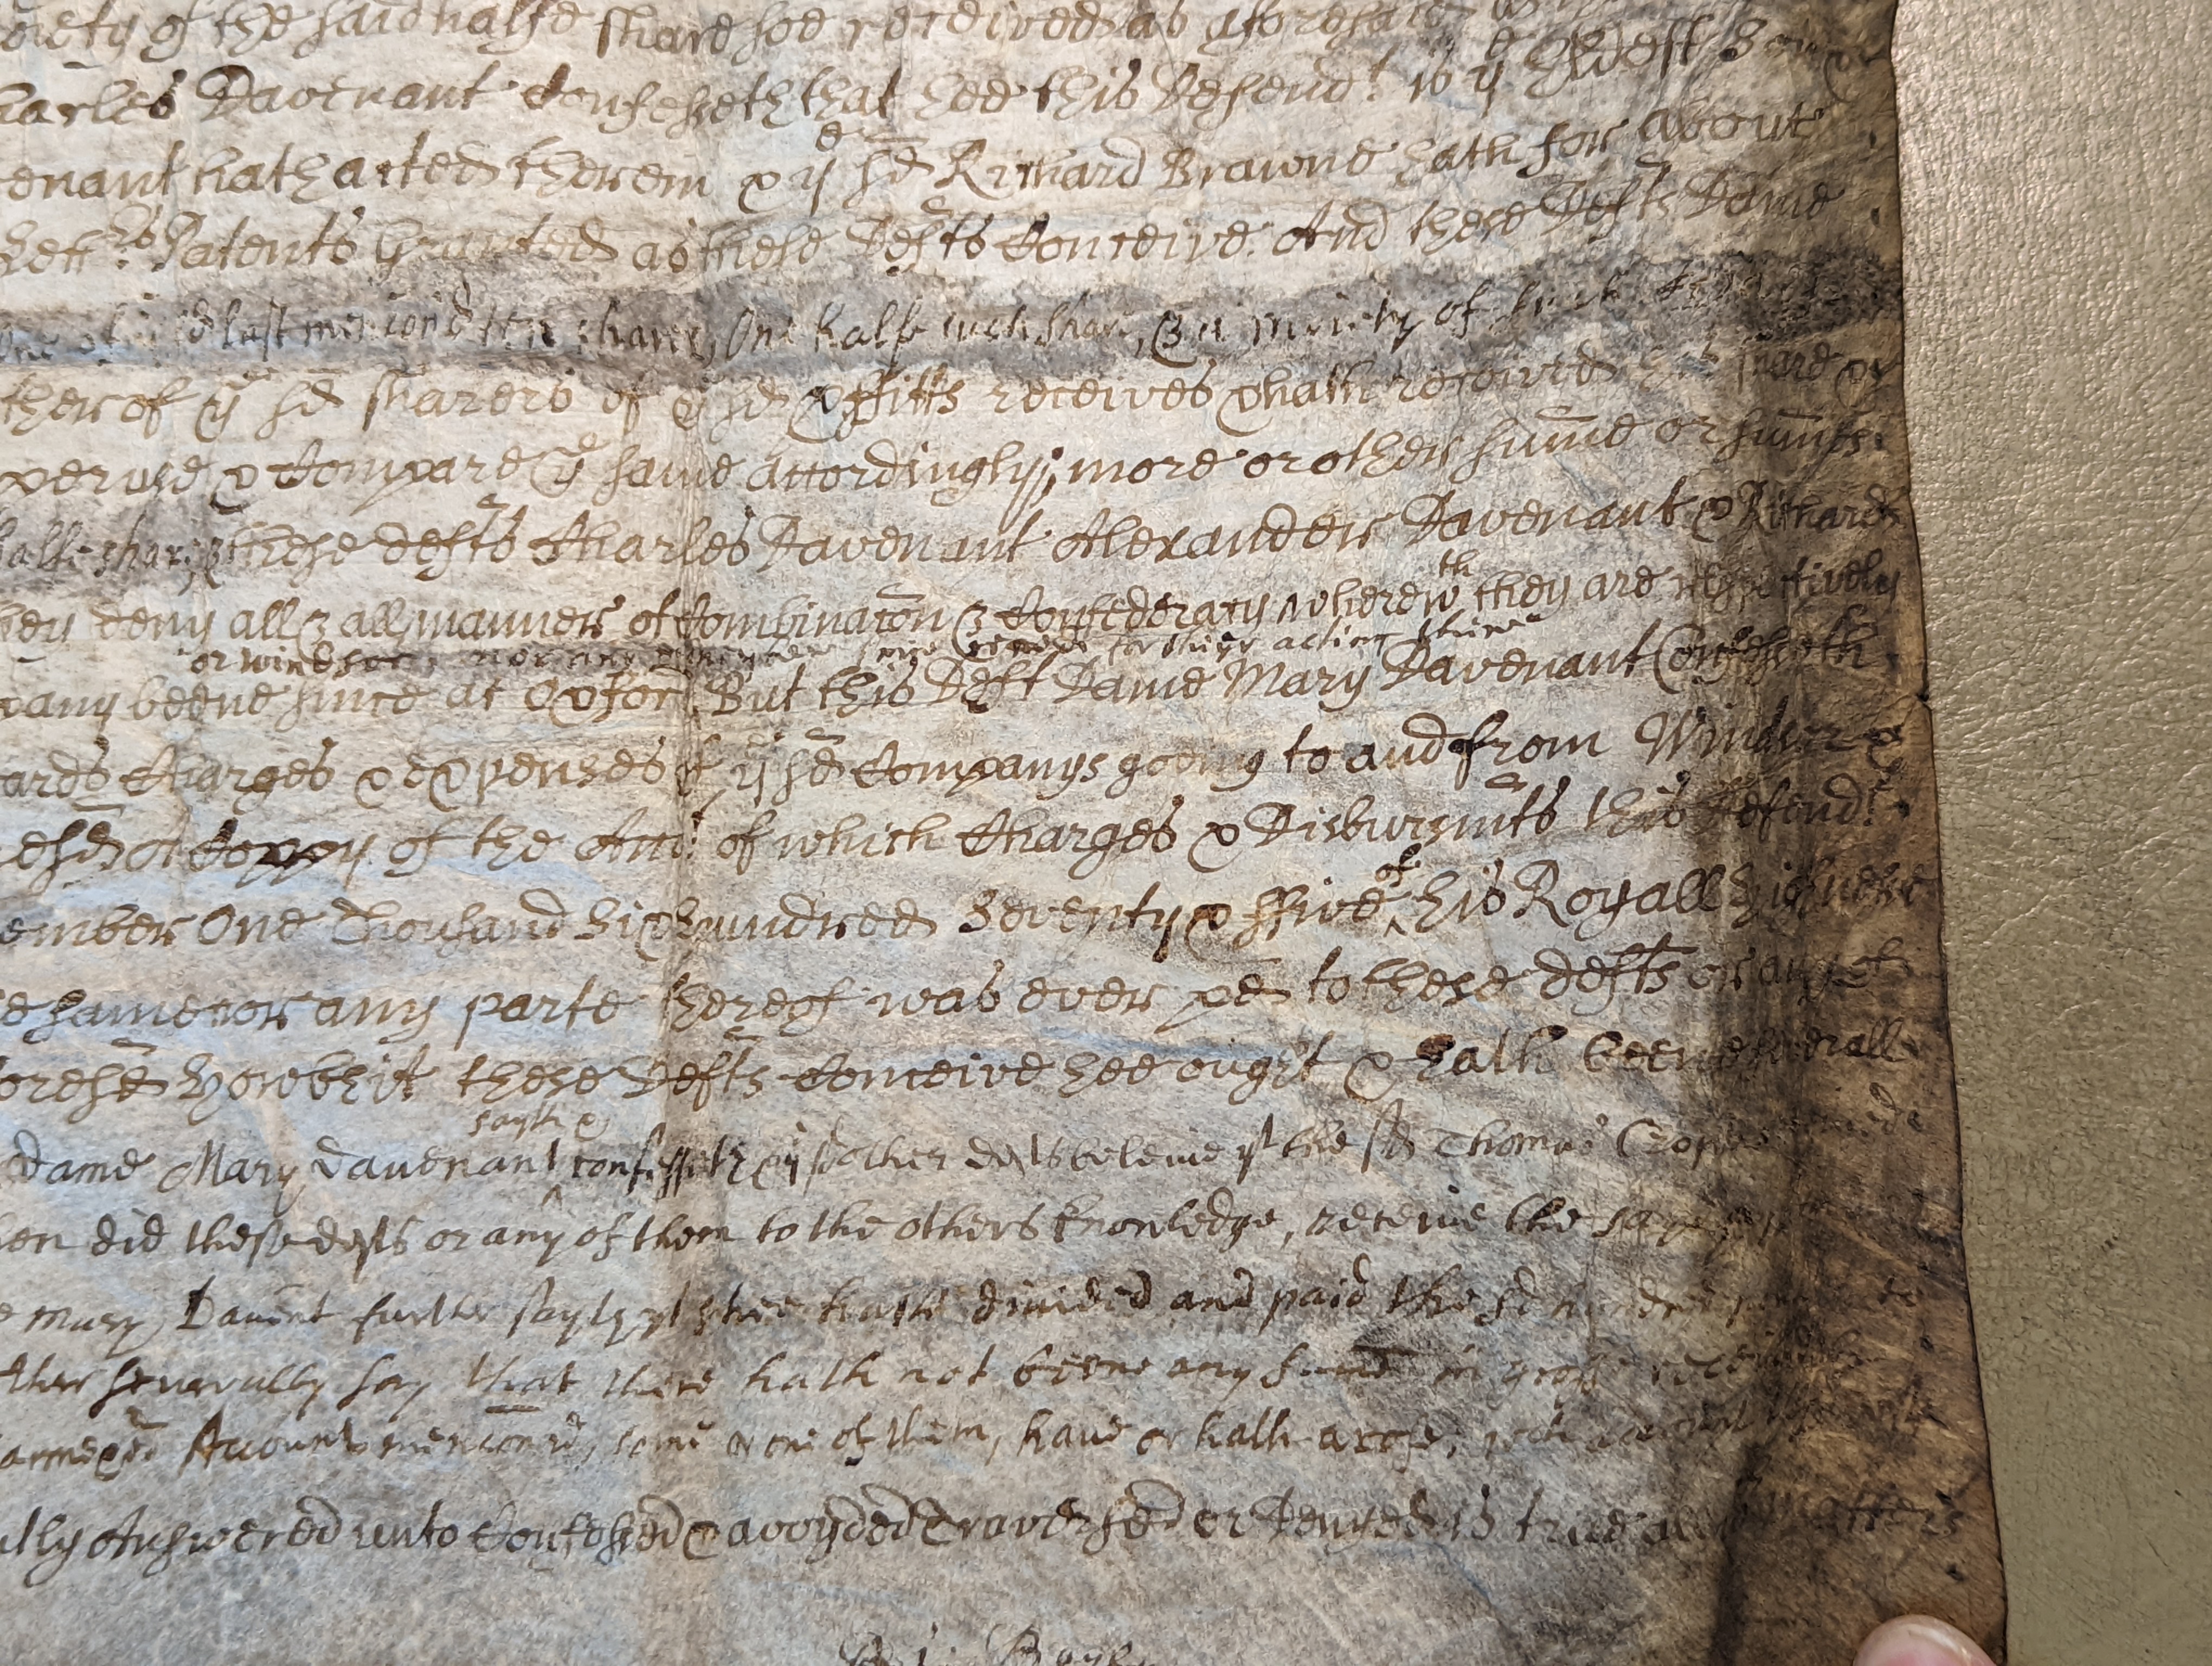 of the said halfe share hee received as aforesaid
harles Davenant Confesseth that hee this Defend.t is ye Eldest Son &
enant hath acted therein & ye sd Richard Browne hath for about
Patents Granted as these Defts Conceive. And these Defts Dame
One of sd last mencond ten shares, One halfe such share, & a moiety of such
ther of ye sd sharers of ye sd pfitts receives & hath received share &
peruse & Compare ye same accordingly, more or other summe or summes
halfe share, & these defts Charles Davenant Alexander Davenant & Richard
hey deny all & all manner of Combinacon & Confederacy wherewth they are respectively
or windsor, nor any for their acting there
pany beene since at Oxford But this Deft Dame Mary Davenant Confesseth
ards Charges & expenses of ye sd Companys goeing to and from Windsor &
esd a Coppy of the Acct. of which Charges & Disbursmts this defend.t
ember One Thousand six hundred Seventy & ffive of his Royall Highnesse
e same nor any parte thereof was ever pd to these defts or any of
oresd Howbeit these Defts Conceive hee ought & hath beene severall
sayth &
dame Mary davenant confesseth & ye sd other defts beleive yt the sd Thomas
en did these defts or any of them to the others knowledge, receive the
Mary Davent further sayth yt shee hath divided and paid the sd hundred to
ther severally say that there hath not beene any in grosse
annexed Account mencond, some or one of them, have or hath
lly Answered unto Confessed & avoyded traversed or Denyed is true all matters